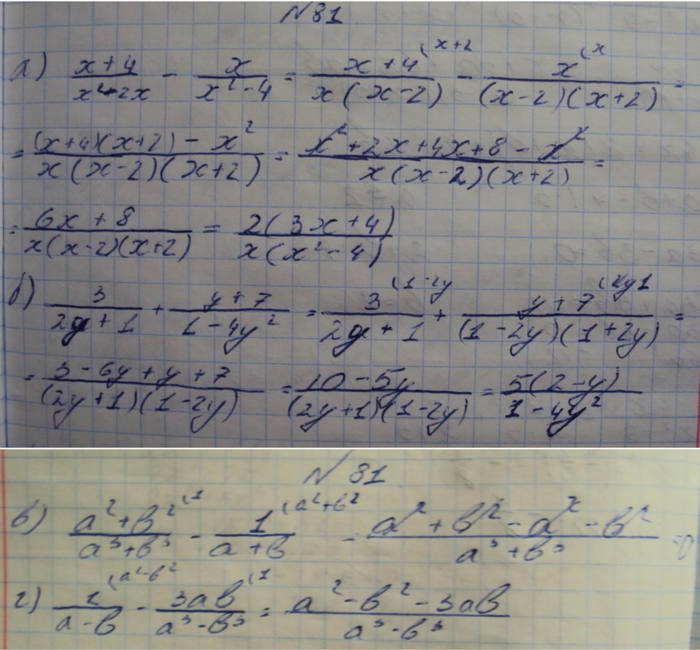 N81
а) (x+4)/(x²-2x) - x/(x²-4) = (x+4^(x+2))/(x(x-2)) - x^(x/((x-2)(x+2)) =
= ((x+4)(x+2) - x²)/(x(x-2)(x+2)) = (x²+2x+4x+8-x²)/(x(x-2)(x+2)) =
= (6x+8)/(x(x-2)(x+2)) = 2(3x+4)/(x(x²-4))
б) 3/(2y+1) + (y+7)/(1-4y²) = 3^(1-2y/(2y+1) + (y+7)/((1-2y)(1+2y)) =
= (3-6y+y+7)/((2y+1)(1-2y)) = (10-5y)/((2y+1)(1-2y)) = 5(2-y)/(1-4y²)
N81
в) (a²+b²)^(1/(a³+b³) - 1^(a²+b²/(a+b) - (a²+b²-a²-b²)/(a³+b³) = 0
г) 1^(a²-b²/(a-b) - 3ab^(1/(a³-b³) = (a²-b²-3ab)/(a³-b³)